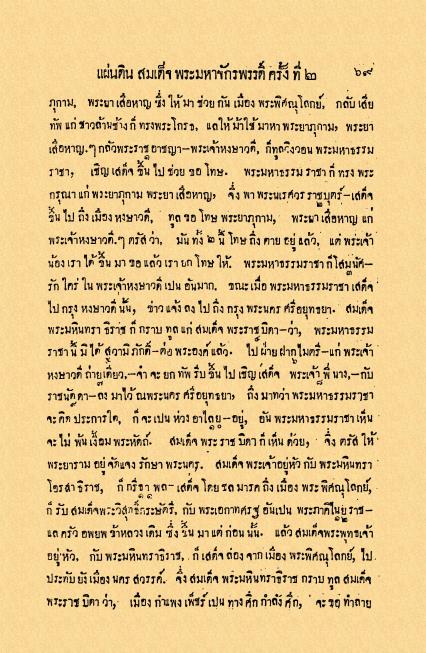 แผ่นดิน สมเด็จ พระมหาจักรพรรดิ์ ครั้ง ที่ ๒ ๖๙
ภุกาม, พระยา เสือหาญ ซึ่ง ให้ มา ช่วย กัน เมือง พระพิศณุโลกย์, กลับ เสีย
ทัพ แก่ ชาวล้านช้าง ก็ ทรงพระโกรธ, แลให้ ม้าใช้ มาหา พระยาภุกาม, พระยา
เสือหาญ.ๆ กลัวพระราชอาชญา—พระเจ้าหงษาวดี, ก็ทูลวิงวอน พระมหาธรรม
ราชา, เชิญ เสด็จ ขึ้น ไป ช่วย ขอ โทษ. พระมหาธรรม ราชา ก็ ทรง พระ
กรุณา แก่ พระยาภุกาม พระยา เสือหาญ, จึ่ง พา พระนเรศวร ราชบุตร์—เสด็จ
ขึ้น ไป ถึง เมือง หงษาวดี, ทูล ขอ โทษ พระยาภุกาม, พระยา เสือหาญ แก่
พระเจ้าหงษาวดี.ๆ ตรัส ว่า, มัน ทั้ง ๒ นี้ โทษ ถึง ตาย อยู่ แล้ว, แต่ พระเจ้า
น้อง เรา ได้ ขึ้น มา ขอ แล้ว เรา ยก โทษ ให้. พระมหาธรรมราชา ก็ โสมนัศ—
รัก ใคร่ ใน พระเจ้าหงษาวดี เปน อันมาก. ขณะ เมื่อ พระมหาธรรมราชา เสด็จ
ไป กรุง หงษาวดี นั้น, ข่าว แจ้ง ลง ไป ถึง กรุง พระนคร ศรีอยุทธยา. สมเด็จ
พระมหินทรา ธิราช ก็ กราบ ทูล แก่ สมเด็จ พระราชบิดา—ว่า, พระมหาธรรม
ราชา นี้ มิ ได้ สวามิ ภักดิ์—ต่อ พระองค์ แล้ว. ไป ฝ่าย ฝากไมตรี—แก่ พระเจ้า
หงษาวดี ถ่ายเดียว.—จำ จะ ยก ทัพ รีบ ขึ้น ไป เชิญ เสด็จ พระเจ้า พี่ นาง,—กับ
ราชนัดดา—ลง มาไว้ ณพระนคร ศรีอยุทธยา, ถึง มาทว่า พระมหาธรรมราชา
จะ คิด ประการใด, ก็ จะ เปน ห่วง อาไลย—อยู่, อัน พระมหาธรรมราชา เห็น
จะ ไม่ พ้น เงื้อม พระหัดถ์. สมเด็จ พระ ราช บิดา ก็ เห็น ด้วย, จึ่ง ตรัส ให้
พระยาราม อยู่ จัดแจง รักษา พระนคร. สมเด็จ พระเจ้าอยู่หัว กับ พระมหินทรา
โอรสาธิราช, ก็ กรีธา พล—เสด็จ โดย ชล มารค ถึง เมือง พระ พิศณุโลกย์,
ก็ รับ สมเด็จพระวิสุทธิ์กระษัตรี, กับ พระเอกาทศรฐ อันเปน พระภาคิไนยราช—
แล ครัว อพยพ ข้าหลวง เดิม ซึ่ง ขึ้น มา แต่ ก่อน นั้น. แล้ว สมเด็จพระพุทธเจ้า
อยู่หัว, กับ พระมหินทราธิราช, ก็ เสด็จ ล่อง จาก เมือง พระพิศณุโลกย์, ไป
ประทับ ยัง เมือง นคร สวรรค์. จึ่ง สมเด็จ พระมหินทราธิราช กราบ ทูล สมเด็จ
พระราช บิดา ว่า, เมือง กำแพง เพ็ชร์ เปน ทาง ศึก กำลัง ศึก, จะ ขอ ทำลาย